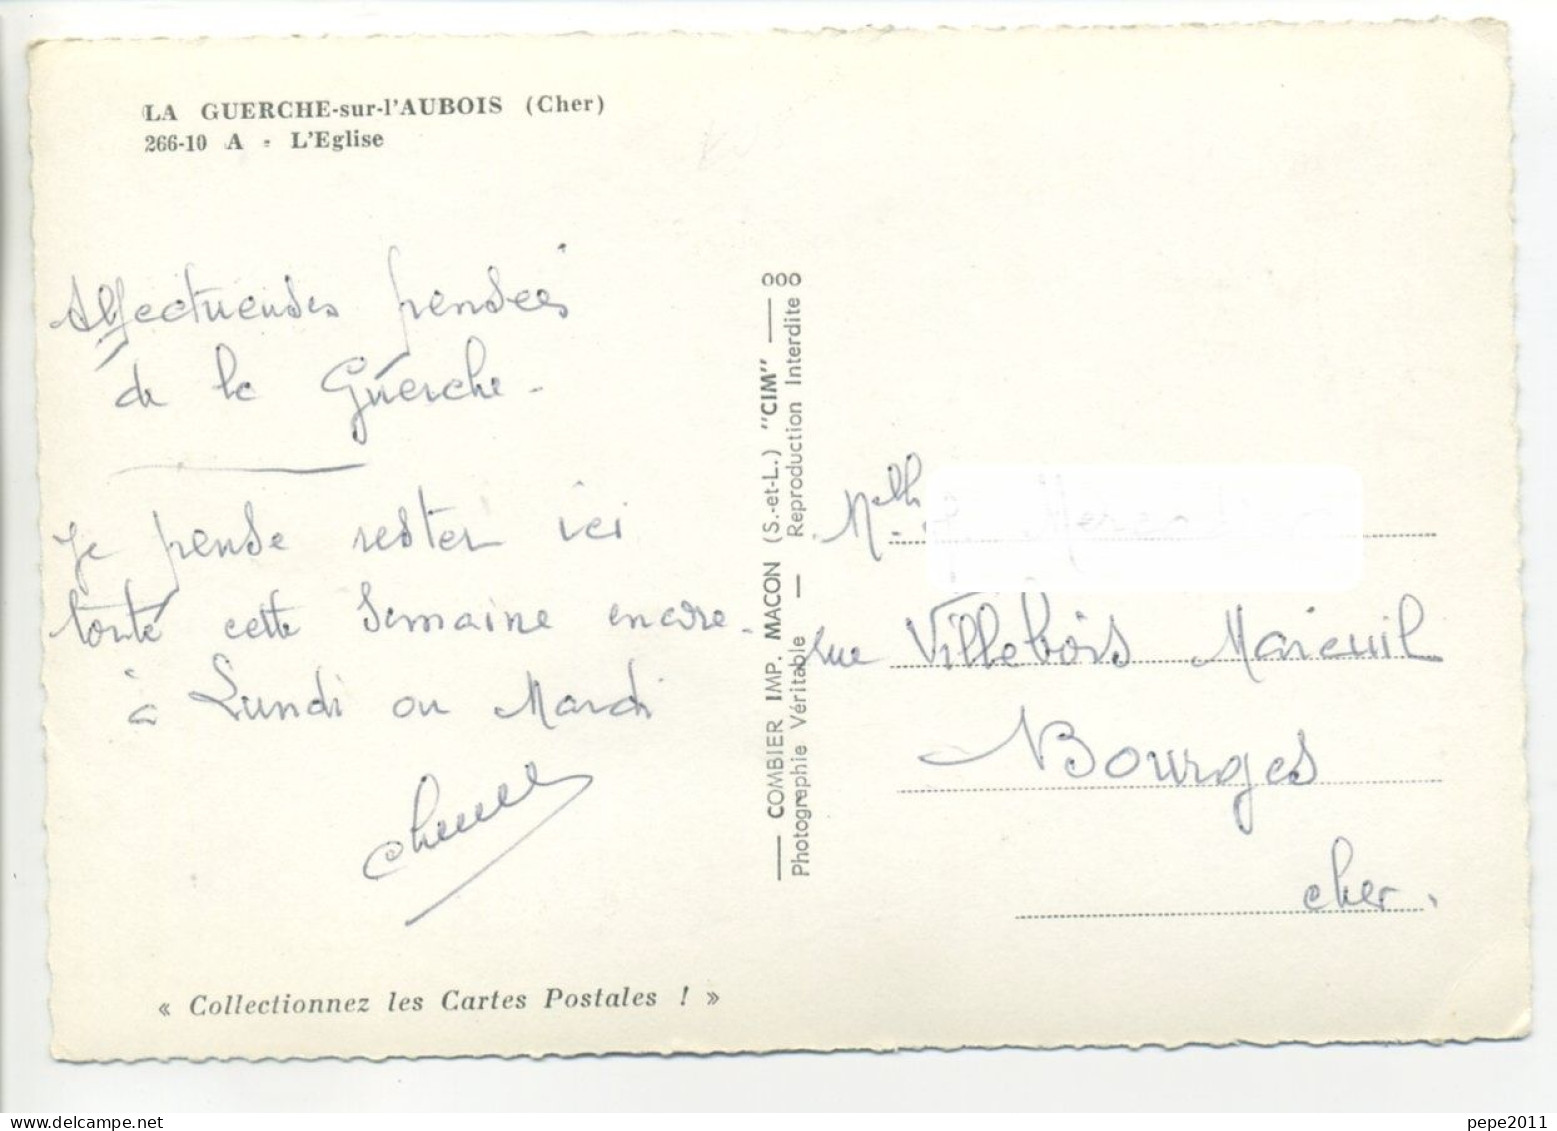 LA GUERCHE-sur-l'AUBOIS (Cher)
266-10 A - L'Eglise
Affectueuses pensées
de la Guerche -
Je pense rester ici
toute cette semaine encore -
à Lundi ou Mardi
« Collectionnez les Cartes Postales ! »
COMBIER IMP. MACON (S.-et-L.) "CIM"
Photographie Véritable — Reproduction Interdite
rue Villebois Mareuil
Bourges
Cher.
pepe2011